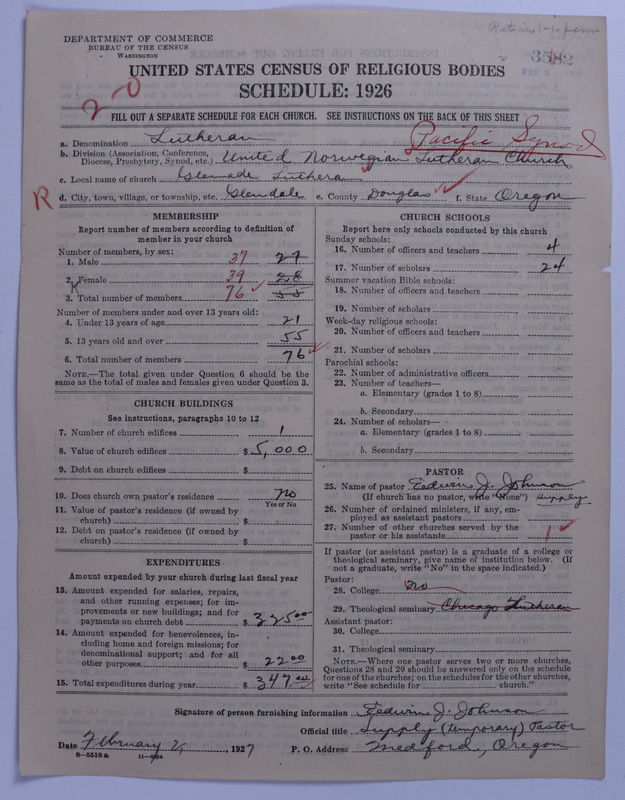 DEPARTMENT OF COMMERCE
BUREAU OF THE CENSUS
WASHINGTON
UNITED STATES CENSUS OF RELIGIOUS BODIES
SCHEDULE: 1926
2-0
FILL OUT A SEPARATE SCHEDULE FOR EACH CHURCH. SEE INSTRUCTIONS ON THE BACK OF THIS SHEET
Pacific Synod
a. Denomination Lutheran
b. Division (Association, Conference, Diocese, Presbytery, Synod, etc.) United Norwegian Lutheran Church
c. Local name of church Glenade Lutheran
R
d. City, town, village, or township, etc. Glendale e. County Douglas f. State Oregon
MEMBERSHIP
Report number of members according to definition of
member in your church
Number of members, by sex:
1. Male 37 27
2. Female 39 28
3. Total number of members 76 55
Number of members under and over 13 years old:
4. Under 13 years of age 21
5. 13 years old and over 55
6. Total number of members 76
NOTE.—The total given under Question 6 should be the
same as the total of males and females given under Question 3.
CHURCH BUILDINGS
See instructions, paragraphs 10 to 12
7. Number of church edifices 1
8. Value of church edifices $ 5,000
9. Debt on church edifices $
10. Does church own pastor's residence no
Yes or No
11. Value of pastor's residence (if owned by
church) $
12. Debt on pastor's residence (if owned by
church) $
EXPENDITURES
Amount expended by your church during last fiscal year
13. Amount expended for salaries, repairs,
and other running expenses; for im-
provements or new buildings; and for
payments on church debt $ 325.00
14. Amount expended for benevolences, in-
cluding home and foreign missions; for
denominational support; and for all
other purposes $ 22.00
15. Total expenditures during year $ 347.00
CHURCH SCHOOLS
Report here only schools conducted by this church
Sunday schools:
16. Number of officers and teachers 4
17. Number of scholars 24
Summer vacation Bible schools:
18. Number of officers and teachers
19. Number of scholars
Week-day religious schools:
20. Number of officers and teachers
21. Number of scholars
Parochial schools:
22. Number of administrative officers
23. Number of teachers—
a. Elementary (grades 1 to 8)
b. Secondary
24. Number of scholars—
a. Elementary (grades 1 to 8)
b. Secondary
PASTOR
25. Name of pastor Edwin J. Johnson
(If church has no pastor, write "None") supply
26. Number of ordained ministers, if any, em-
ployed as assistant pastors
27. Number of other churches served by the
pastor or his assistants 1
If pastor (or assistant pastor) is a graduate of a college or
theological seminary, give name of institution below. (If
not a graduate, write "No" in the space indicated.)
Pastor:
28. College no
29. Theological seminary Chicago Lutheran
Assistant pastor:
30. College
31. Theological seminary
NOTE.—Where one pastor serves two or more churches,
Questions 28 and 29 should be answered only on the schedule
for one of the churches; on the schedules for the other churches,
write "See schedule for church."
Signature of person furnishing information Edwin J. Johnson
Official title Supply (temporary) Pastor
Date February 2, 1927 P. O. Address Medford, Oregon